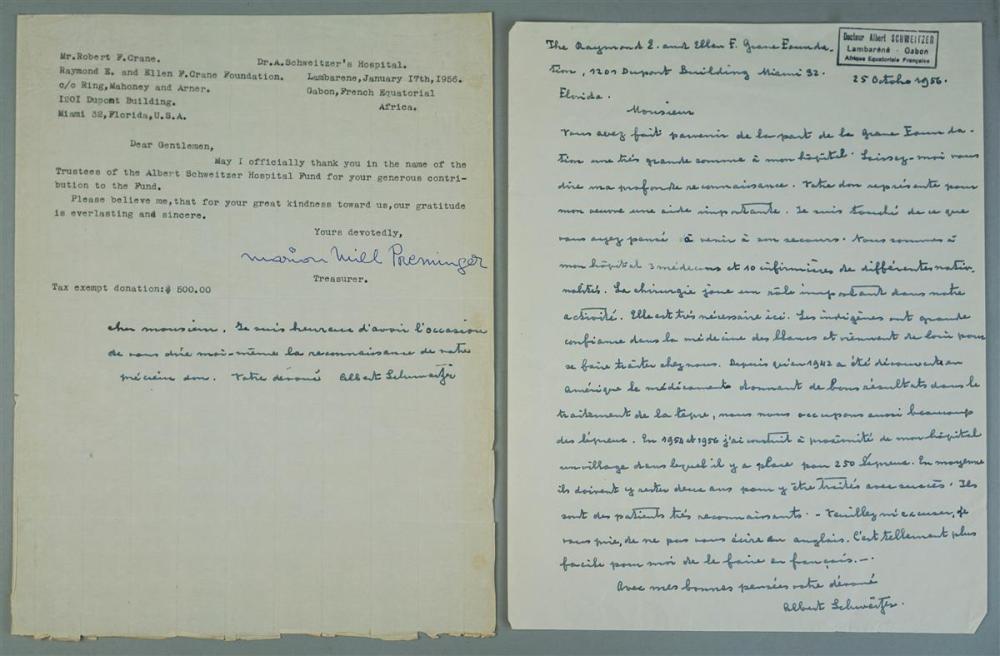 Mr.Robert F.Crane.
Raymond E. and Ellen F.Crane Foundation.
c/o Ring,Mahoney and Arner.
1201 Dupont Building.
Miami 32,Florida,U.S.A.
Dr.A.Schweitzer's Hospital.
Lambarene,January 17th,1956.
Gabon,French Equatorial
Africa.
Dear Gentlemen,
May I officially thank you in the name of the
Trustees of the Albert Schweitzer Hospital Fund for your generous contri-
bution to the Fund.
Please believe me,that for your great kindness toward us,our gratitude
is everlasting and sincere.
Yours devotedly,
Marion Mill Preminger
Treasurer.
Tax exempt donation:$ 500.00
cher monsieur. Je suis heureux d'avoir l'occasion
de vous dire moi-même la reconnaissance de votre
précieux don. Votre dévoué Albert Schweitzer
Docteur Albert SCHWEITZER
Lambaréné - Gabon
Afrique Equatoriale Française
The Raymond E. and Ellen F. Crane Founda-
tion, 1201 Dupont Building Miami 32.
Florida.
25 Octobre 1956.
Monsieur
Vous avez fait parvenir de la part de la Crane Founda-
tion une très grande somme à mon hôpital. Laissez-moi vous
dire ma profonde reconnaissance. Votre don représente pour
mon oeuvre une aide importante. Je suis touché de ce que
vous ayez pensé à venir à son secours. Nous sommes à
mon hôpital 3 médecins et 10 infirmières de différentes natio-
nalités. La chirurgie joue un rôle important dans notre
activité. Elle est très nécessaire ici. Les indigènes ont grande
confiance dans la médecine des blancs et viennent de loin pour
se faire traiter chez nous. Depuis qu'en 1942 a été découvert en
Amérique le médicament donnant de bons résultats dans le
traitement de la lèpre, nous nous occupons aussi beaucoup
des lépreux. En 1954 et 1956 j'ai construit à proximité de mon hôpital
un village dans lequel il y a place pour 250 lépreux. En moyenne
ils doivent y rester deux ans pour y être traités avec succès. Ils
sont des patients très reconnaissants. - Veuillez m'excuser, je
vous prie, de ne pas vous écrire en anglais. C'est tellement plus
facile pour moi de le faire en français. -
Avec mes bonnes pensées votre dévoué
Albert Schweitzer.